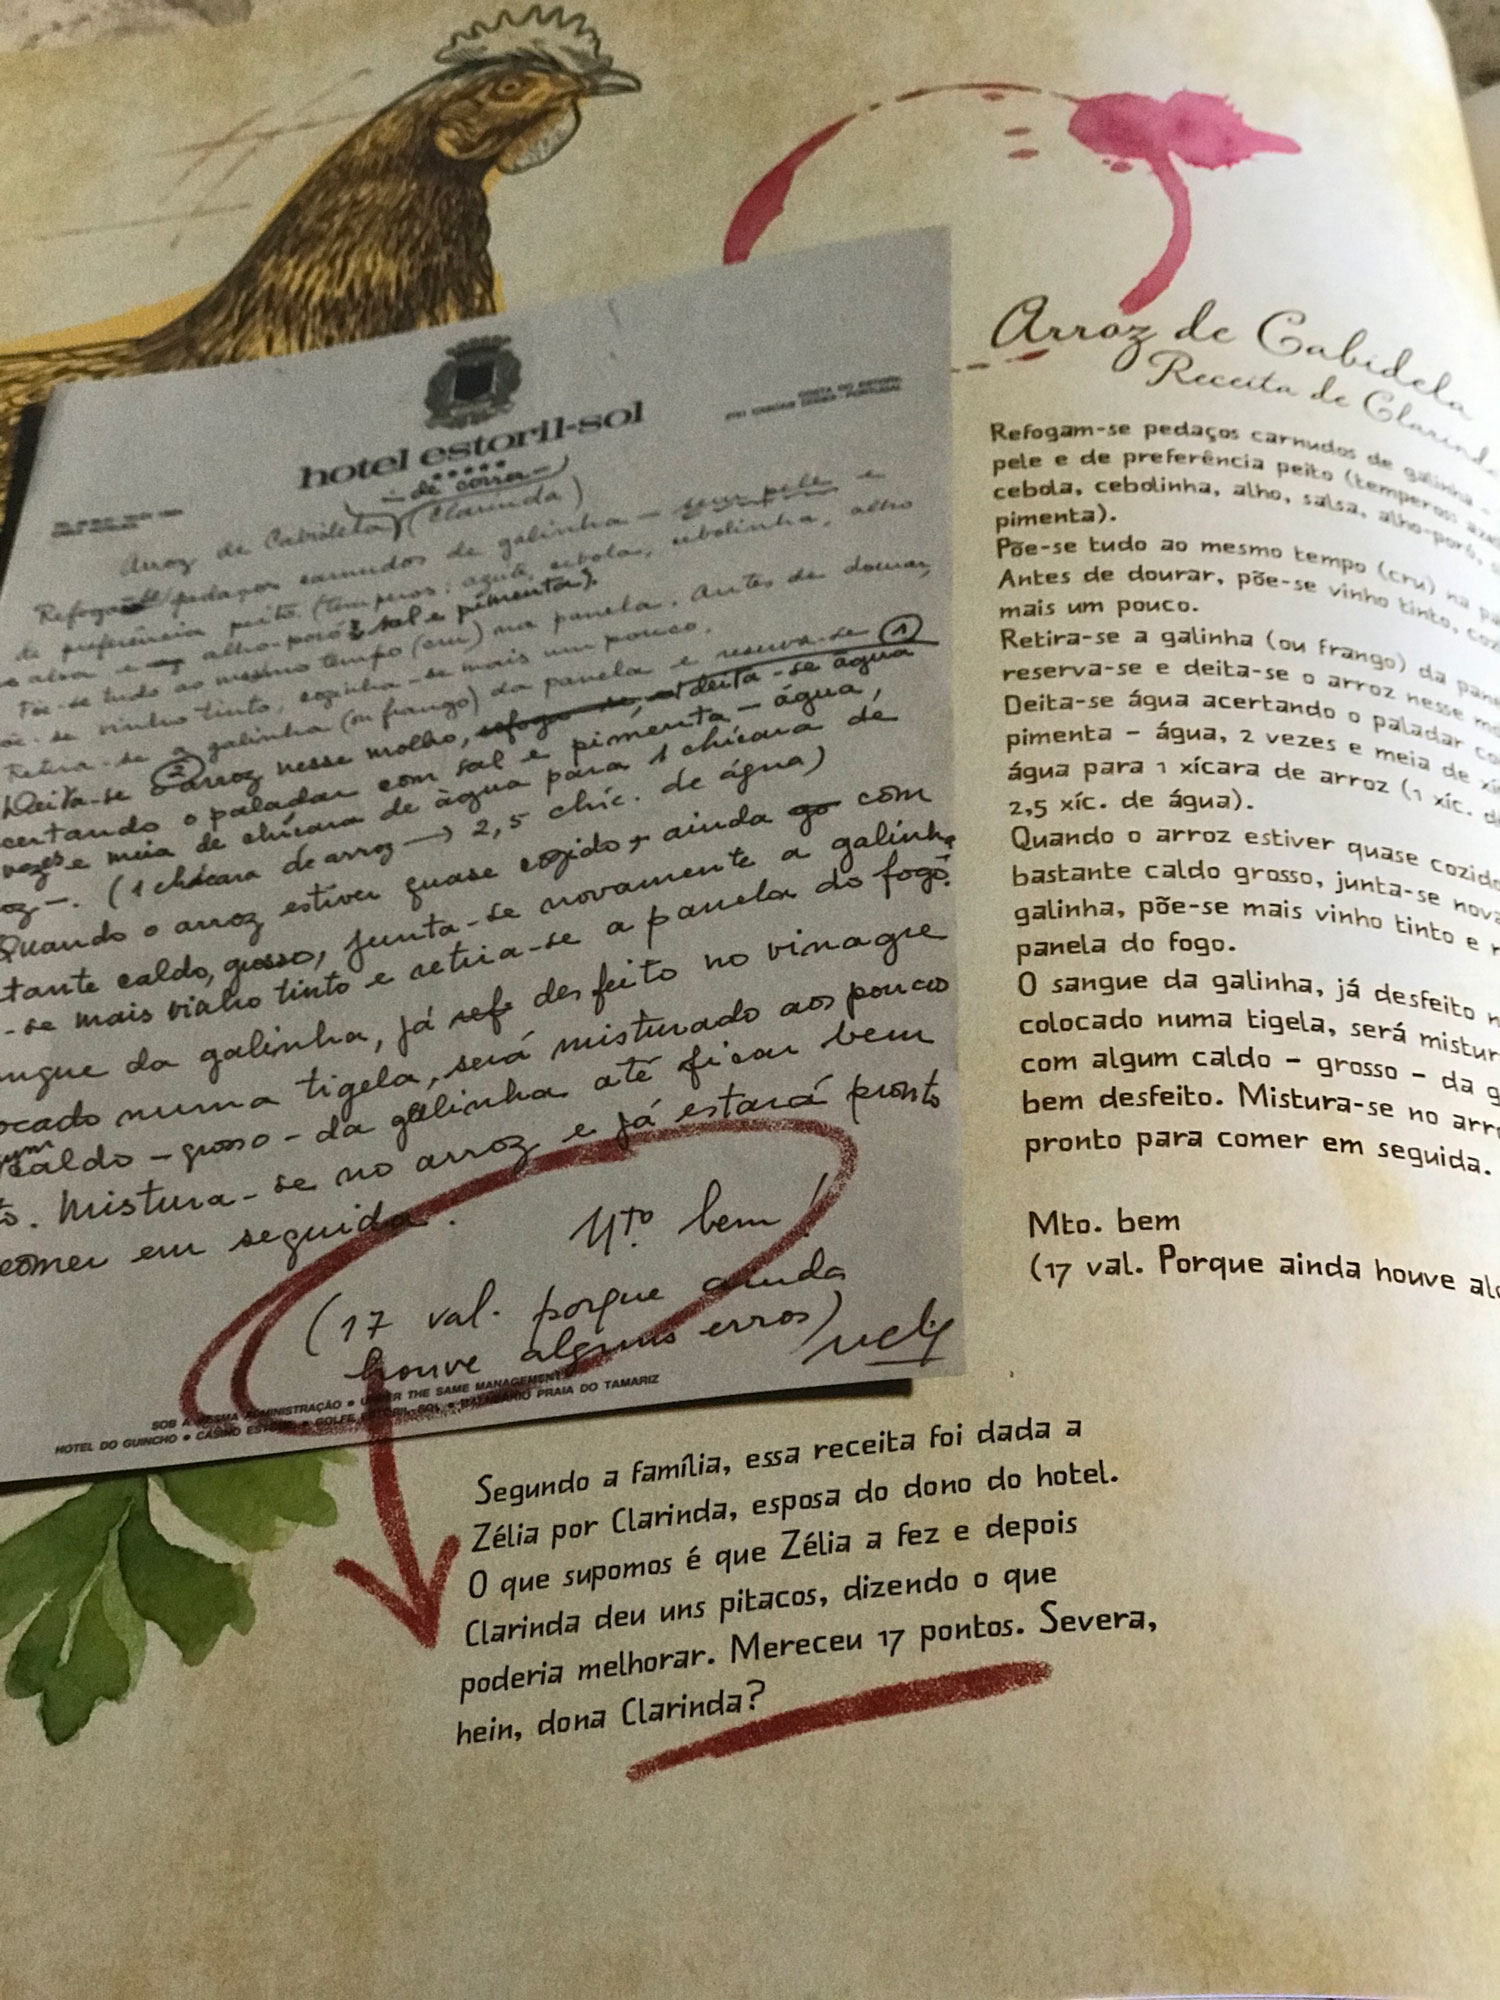 hotel estoril-sol
– de cor –
Arroz de Cabidela (Clarinda)
Refogam-se pedaços carnudos de galinha – sem pele e
de preferência peito (temperos: azeite, cebola, cebolinha, alho
salsa e alho-poró, sal e pimenta).
Põe-se tudo ao mesmo tempo (cru) na panela. Antes de dourar,
põe-se vinho tinto, cozinha-se mais um pouco.
Retira-se a galinha (ou frango) da panela e reserva-se 1
Deita-se 2 o arroz nesse molho, deita-se água
certando o paladar com sal e pimenta – água,
vezes e meia de chícara de água para 1 chícara de
oz –. (1 chícara de arroz → 2,5 chíc. de água)
Quando o arroz estiver quase cozido, ainda com
tante caldo, grosso, junta-se novamente a galinha
-se mais vinho tinto e retira-se a panela do fogo.
ngue da galinha, já desfeito no vinagre
ocado numa tigela, será misturado aos pouco
caldo – grosso – da galinha até ficar bem
to. Mistura-se no arroz e já estará pronto
comer em seguida.
Mto. bem!
(17 val. porque ainda
houve alguns erros)
SOB A MESMA ADMINISTRAÇÃO • UNDER THE SAME MANAGEMENT
HOTEL DO GUINCHO • CASINO ESTORIL • GOLFE ESTORIL-SOL • BALNEÁRIO PRAIA DO TAMARIZ
Arroz de Cabidela
Receita de Clarinda
Refogam-se pedaços carnudos de galinha –
pele e de preferência peito (temperos:
cebola, cebolinha, alho, salsa, alho-poró,
pimenta).
Põe-se tudo ao mesmo tempo (cru) na
Antes de dourar, põe-se vinho tinto,
mais um pouco.
Retira-se a galinha (ou frango) da
reserva-se e deita-se o arroz nesse
Deita-se água acertando o paladar
pimenta – água, 2 vezes e meia de
água para 1 xícara de arroz (1 xíc.
2,5 xíc. de água).
Quando o arroz estiver quase
bastante caldo grosso, junta-se
galinha, põe-se mais vinho tinto e
panela do fogo.
O sangue da galinha, já desfeito
colocado numa tigela, será
com algum caldo – grosso – da
bem desfeito. Mistura-se no
pronto para comer em seguida.
Mto. bem
(17 val. Porque ainda houve
Segundo a família, essa receita foi dada a
Zélia por Clarinda, esposa do dono do hotel.
O que supomos é que Zélia a fez e depois
Clarinda deu uns pitacos, dizendo o que
poderia melhorar. Mereceu 17 pontos. Severa,
hein, dona Clarinda?